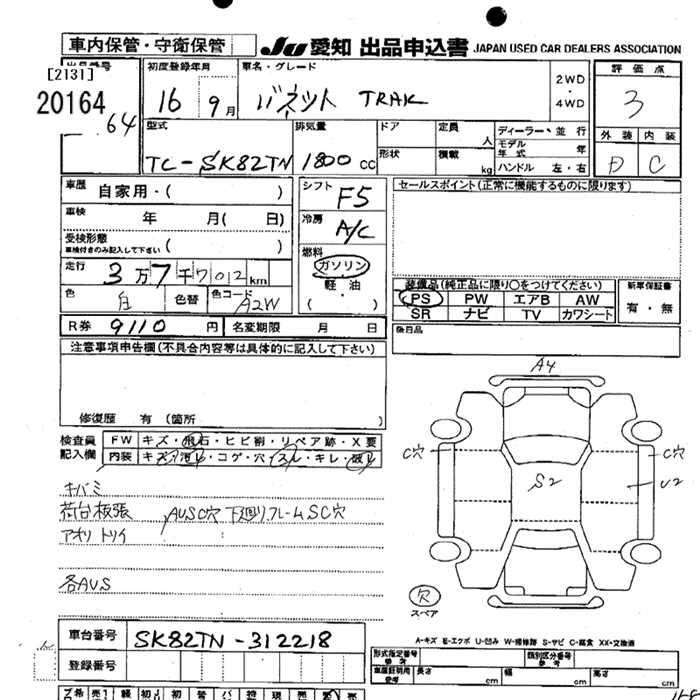 車内保管・守衛保管 JU 愛知 出品申込書 JAPAN USED CAR DEALERS ASSOCIATION
出品番号 初度登録年月 車名・グレード 2WD ・ 4WD 評価点
[2131]
20164 16 9月 バネット TRAK 3
64
型式 排気量 ドア 定員 人 ディーラー・並行 外装 内装
モデル年式 年
TC-SK82TN 1800 cc 形状 積載 kg ハンドル 左・右 D C
車歴 自家用・( ) シフト F5 セールスポイント(正常に機能するものに限ります)
車検 年 月( 日) 冷房 A/C
受検形態 ( )
車検付きのみ記入して下さい
燃料 ガソリン
走行 3万7千7012km
軽油
( ・ )
装備品(純正品に限り○をつけてください) 新車保証書
色 白 色替 色コード A2W
PS PW エアB AW 有・無
SR ナビ TV カワシート
R券 9110 円 名変期限 月 日
後日品
注意事項申告欄(不具合内容等は具体的に記入して下さい)
修復歴 有 (箇所 )
検査員記入欄 FW キズ・飛石・ヒビ割・リペア跡・X要
内装 キズ・汚れ・コゲ・穴・スレ・キレ・破れ
キバミ
荷台板張 AUSC穴 下廻りフレームSC穴
アオリ トリイ
各AUS
A4
C穴 C穴
S2 U2
欠
スペア
車台番号 SK82TN-312218
登録番号
A-キズ E-エクボ U-凹み W-補修跡 S-サビ C-腐食 XX-交換済
形式指定番号 参考 類別区分番号 参考
車庫証明用 参考 長さ cm 幅 cm 高さ cm